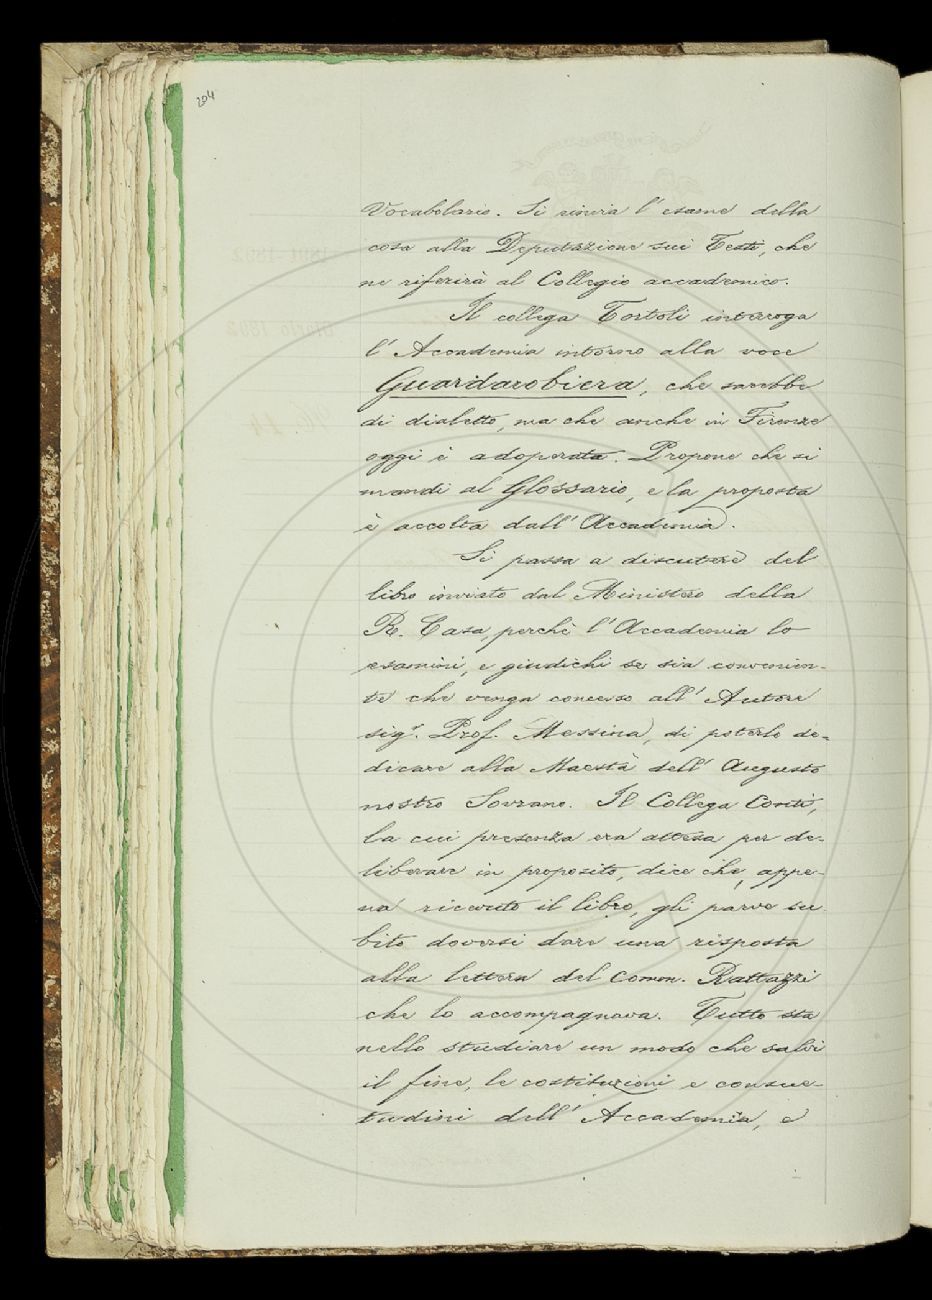 204
Vocabolario. Si rinvia l'esame della
cosa alla Deputazione sui Testi, che
ne riferirà al Collegio accademico.
Il collega Tortoli interroga
l'Accademia intorno alla voce
Guardarobiera, che sarebbe
di dialetto, ma che anche in Firenze
oggi è adoperata. Propone che si
mandi al Glossario, e la proposta
è accolta dall'Accademia.
Si passa a discutere del
libro inviato dal Ministero della
R. Casa, perchè l'Accademia lo
esamini, e giudichi se sia convenien-
te che venga concesso all'Autore
sigr. Prof. Messina, di poterlo de-
dicare alla Maestà dell'Augusto
nostro Sovrano. Il Collega Conti,
la cui presenza era attesa per de-
liberare in proposito, dice che, appe-
na ricevuto il libro, gli parve su-
bito doversi dare una risposta
alla lettera del Comm. Rattazzi
che lo accompagnava. Tutto sta
nello studiare un modo che salvi
il fine, le costituzioni e consue-
tudini dell'Accademia, e